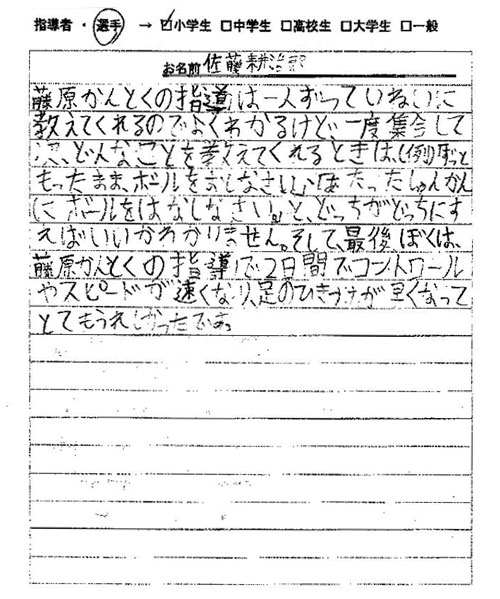 指導者・選手 → ☑小学生 □中学生 □高校生 □大学生 □一般
お名前 佐藤耕治郎
藤原かんとくの指導は一人ずつていねいに
教えてくれるのでよくわかるけど、一度集合して
次、どんなことを教えてくれるときは、(例)「ずっと
もったまま、ボールをおしなさい。」「あたったしゅんかん
にボールをはなしなさい。」と、どっちがどっちにす
ればいいかわかりません。そして、最後、ぼくは、
藤原かんとくの指導で2日間でコントロール
やスピードが速くなり、足のひきつけが早くなって
とてもうれしかったです。